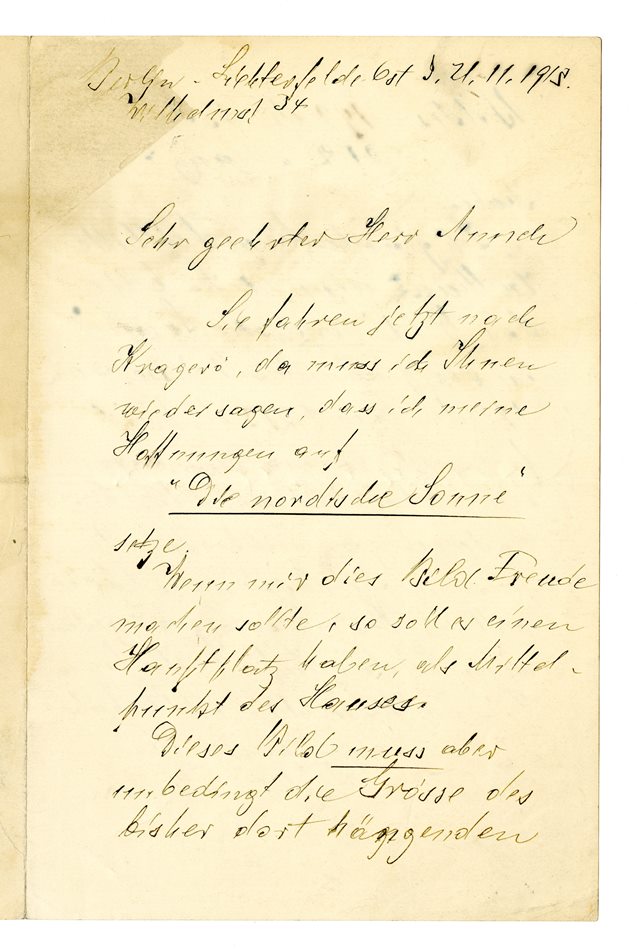 Berlin-Lichterfelde Ost d. 21.11.1918.
34
Sehr geehrter Herr Munch
Sie fahren jetzt nach
Kragerö, da muss ich Ihnen
wieder sagen, dass ich meine
Hoffnungen auf
"Die nordische Sonne"
setze.
Wenn mir dies Bild Freude
machen sollte, so soll es einen
Hauptplatz haben, als Mittel-
punkt des Hauses.
Dieses Bild muss aber
unbedingt die Grösse des
bisher dort hängenden